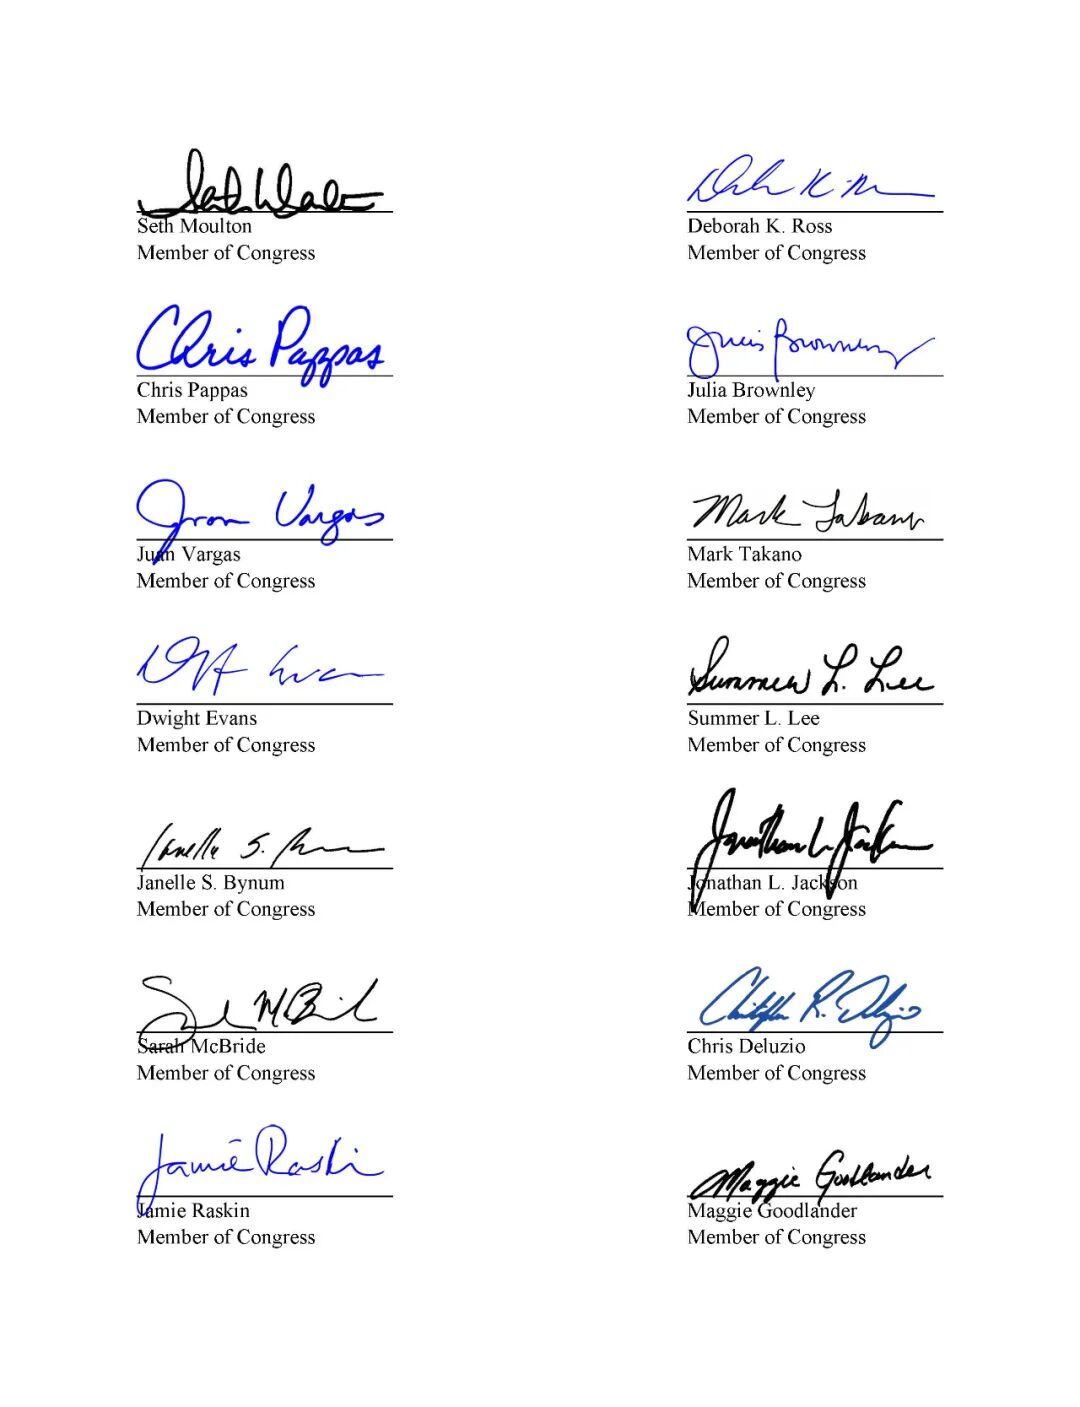 Seth Moulton
Member of Congress
Deborah K. Ross
Member of Congress
Chris Pappas
Chris Pappas
Member of Congress
Julia Brownley
Member of Congress
Juan Vargas
Juan Vargas
Member of Congress
Mark Takano
Mark Takano
Member of Congress
Dwight Evans
Member of Congress
Summer L. Lee
Summer L. Lee
Member of Congress
Janelle S. Bynum
Member of Congress
Jonathan L. Jackson
Jonathan L. Jackson
Member of Congress
Sarah McBride
Member of Congress
Christopher R. Deluzio
Chris Deluzio
Member of Congress
Jamie Raskin
Jamie Raskin
Member of Congress
Maggie Goodlander
Maggie Goodlander
Member of Congress